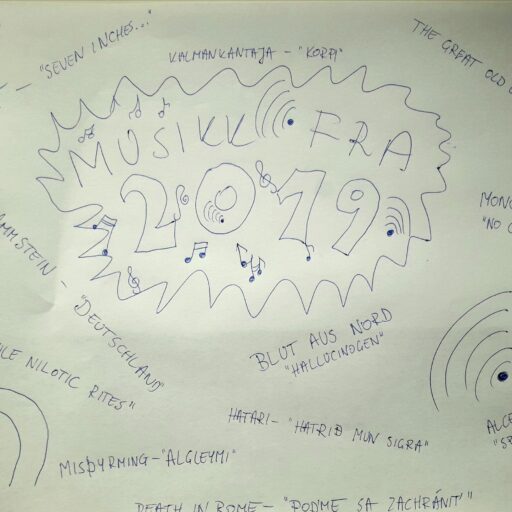 - "SEVEN INCHES..."
KALMANKANTAJA - "KORPI"
THE GREAT OLD
MUSIKK FRA
2019
"NO
MMSTEIN -
"DEUTSCHLAND"
BLUT AUS NORD
"HALLUCINOGEN"
NILOTIC RITES"
HATARI - "HATRIÐ MUN SIGRA"
MISÞYRMING - "ALGLEYMI"
DEATH IN ROME - "POĎME SA ZACHRÁNIŤ"